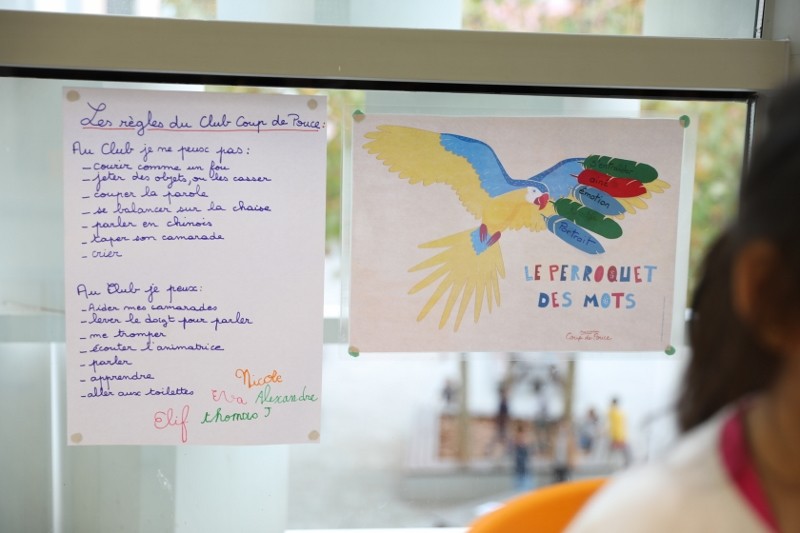 Les règles du Club Coup de Pouce:
Au Club je ne peux pas:
- courir comme un fou
- jeter des objets, ou les casser
- couper la parole
- se balancer sur la chaise
- parler en chinois
- taper son camarade
- crier
Au Club je peux:
- Aider mes camarades
- lever le doigt pour parler
- me tromper
- écouter l'animatrice
- parler
- apprendre
- aller aux toilettes
Nicole
Eva Alexandre
Elif thomas J
ami
émotion
Portrait
LE PERROQUET
DES MOTS
Coup de Pouce